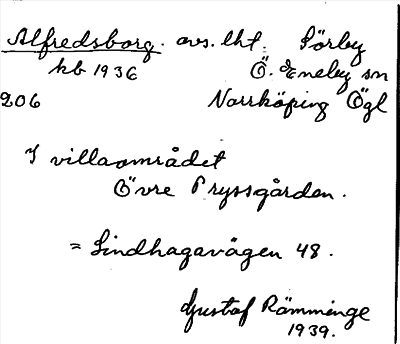 Alfredsborg. avs. lht. Sörby
kb 1936 Ö. Eneby sn
206 Norrköping Ögl
I villaområdet
Övre Pryssgården.
= Lindhagavägen 48.
Gustaf Rämminge
1939.